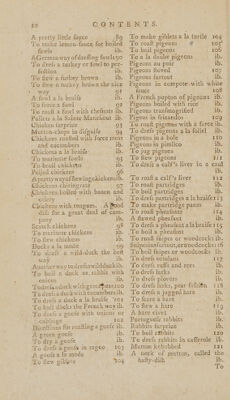 CONTENTS.
A pretty little sauce 89
To make lemon-sauce for boiled
fowls ib.
A German way of dressing fowls 90
To dress a turkey or fowl to per-
fection ib.
To stew a turkey brown ib.
To stew a turkey brown the nice
way 91
A fowl a la braise ib.
To force a fowl ib.
To roast a fowl with chesnuts ib.
Pullets a la Sainte Menehout ib.
Chicken surprize 93
Mutton-chops in disguise 94
Chickens roasted with force meat
and cucumbers ib.
Chickens a la braise ib.
To marinate fowls 95
To broil chickens ib.
Pulled chickens 96
A pretty way of stewing chickens ib.
Chickens chiringrate 97
Chickens boiled with bacon and
celery ib.
Chickens with tongues. A good
dish for a great deal of com-
pany ib.
Scotch chickens 98
To marinate chickens ib.
To stew chickens ib.
Ducks a la mode 99
To dress a wild-duck the best
way ib.
Another way to dress a wild duck ib.
To boil a duck or rabbit with
onions ib.
To dress a duck with green peas 100
To dress a duck with cucumbers ib.
To dress a duck a la braise 101
To boil ducks the French way ib.
To dress a goose with onions or
cabbage 102
Directions for roasting a goose ib.
A green goose ib.
To dry a goose ib.
To dress a goose in ragoo 103
A goose a la mode ib.
To stew giblets 104
To make giblets a la turtle 104
To roast pigeons ib.
To boil pigeons ib.
To a la daube pigeons ib.
Pigeons au poir ib.
Pigeons stoved 107
Pigeons surtout ib.
Pigeons in compote with white
sauce 108
A French pupton of pigeons ib.
Pigeons boiled with rice ib.
Pigeons transmogrified ib.
Pigeons in fricandos 109
To roast pigeons with a farce ib.
To dress pigeons a la soleil ib.
Pigeons in a hole 110
Pigeons in pimlico ib.
To jug pigeons ib.
To stew pigeons 111
To dress a calf's liver in a caul
ib.
To roast a calf's liver 112
To roast partridges ib.
To boil partridges ib.
To dress partridges a la braise 113
To make partridge panes ib.
To roast pheasants 114
A stewed pheasant ib.
To dress a pheasant a la braise 115
To boil a pheasant ib.
To roast snipes or woodcocks ib.
Snipes in a surtout, or woodcocks 116
To boil snipes or woodcocks ib.
To dress ortolans 117
To dress ruffs and rees ib.
To dress larks ib.
To dress plovers ib.
To dress larks, pear fashion 118
To dress a jugged hare ib.
To scare a hare ib.
To stew a hare 119
A hare civet ib.
Portuguese rabbits ib.
Rabbits surprize ib.
To boil rabbits 120
To dress rabbits in casserole ib.
Mutton kebobbed 121
A neck of mutton, called the
hasty-dish ib.
To